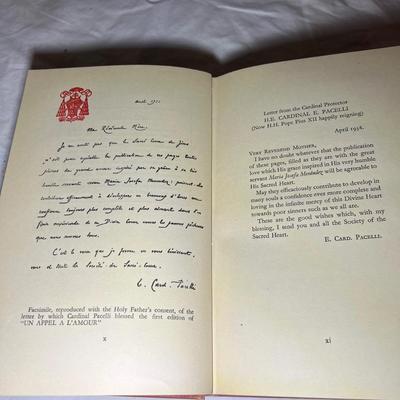 Avril 193
Ma Révérende Mère,
Je ne doute pas que le Sacré Cœur de Jésus
n'ait pour agréable la publication de ces pages toutes
pleines du grand amour inspiré par sa grâce à sa très
humble servante sœur Maria Josefa Menendez; puissent-elles
contribuer efficacement à développer en beaucoup d'âmes une
confiance toujours plus complète et plus aimante dans l'in-
finie miséricorde de ce Divin Cœur envers les pauvres pécheurs
que nous sommes.
C'est le vœu que je forme en vous bénissant,
vous et toute la Société du Sacré-Cœur.
E. Card. Pacelli
Facsimile, reproduced with the Holy Father's consent, of the
letter by which Cardinal Pacelli blessed the first edition of
"UN APPEL A L'AMOUR"
x
Letter from the Cardinal Protector
H.E. CARDINAL E. PACELLI
(Now H.H. Pope Pius XII happily reigning)
April 1938.
VERY REVEREND MOTHER,
I have no doubt whatever that the publication
of these pages, filled as they are with the great
love which His grace inspired in His very humble
servant Maria Josefa Menendez, will be agreeable to
His Sacred Heart.
May they efficaciously contribute to develop in
many souls a confidence ever more complete and
loving in the infinite mercy of this Divine Heart
towards poor sinners such as we all are.
These are the good wishes which, with my
blessing, I send you and all the Society of the
Sacred Heart.
E. CARD. PACELLI.
xi